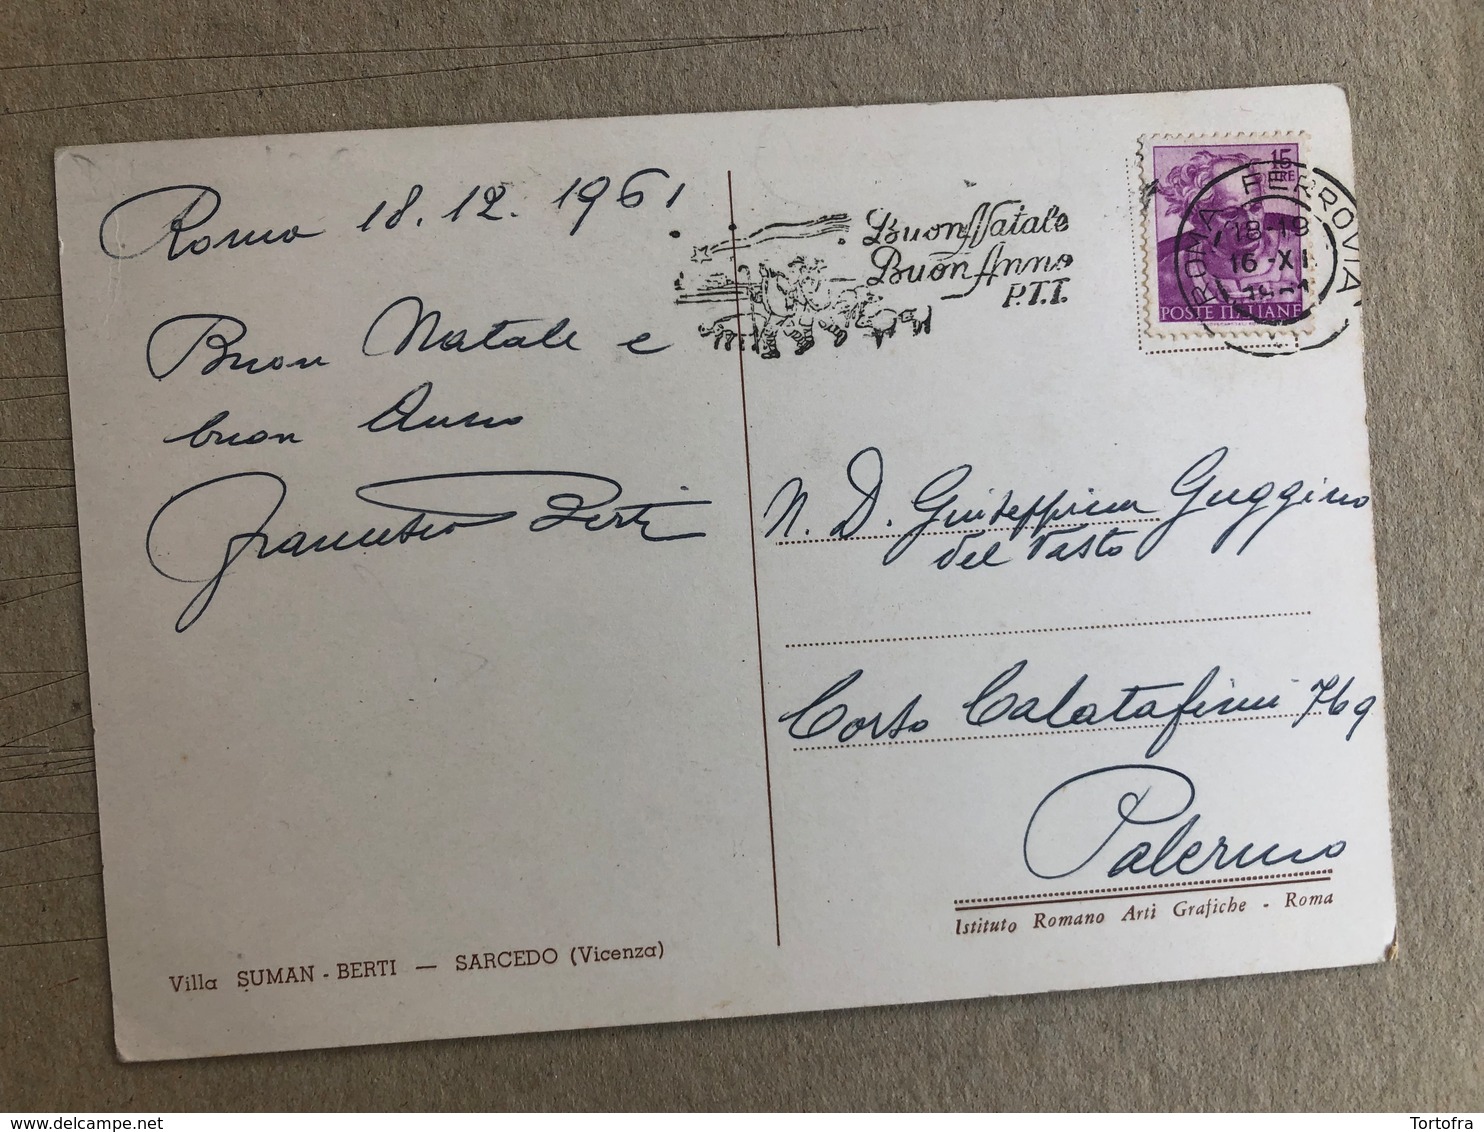 Roma 18.12.1961
Buon Natale e
buon Anno
Francesco Berti
Villa SUMAN - BERTI — SARCEDO (Vicenza)
Buon Natale
Buon Anno
P.T.T.
15
LIRE
POSTE ITALIANE
ROMA FERROVIA
18-19
16-XI
N. D. Giuseppina Guggino
del Vasto
Corso Calatafimi
Palermo
Istituto Romano Arti Grafiche - Roma
Tortofra